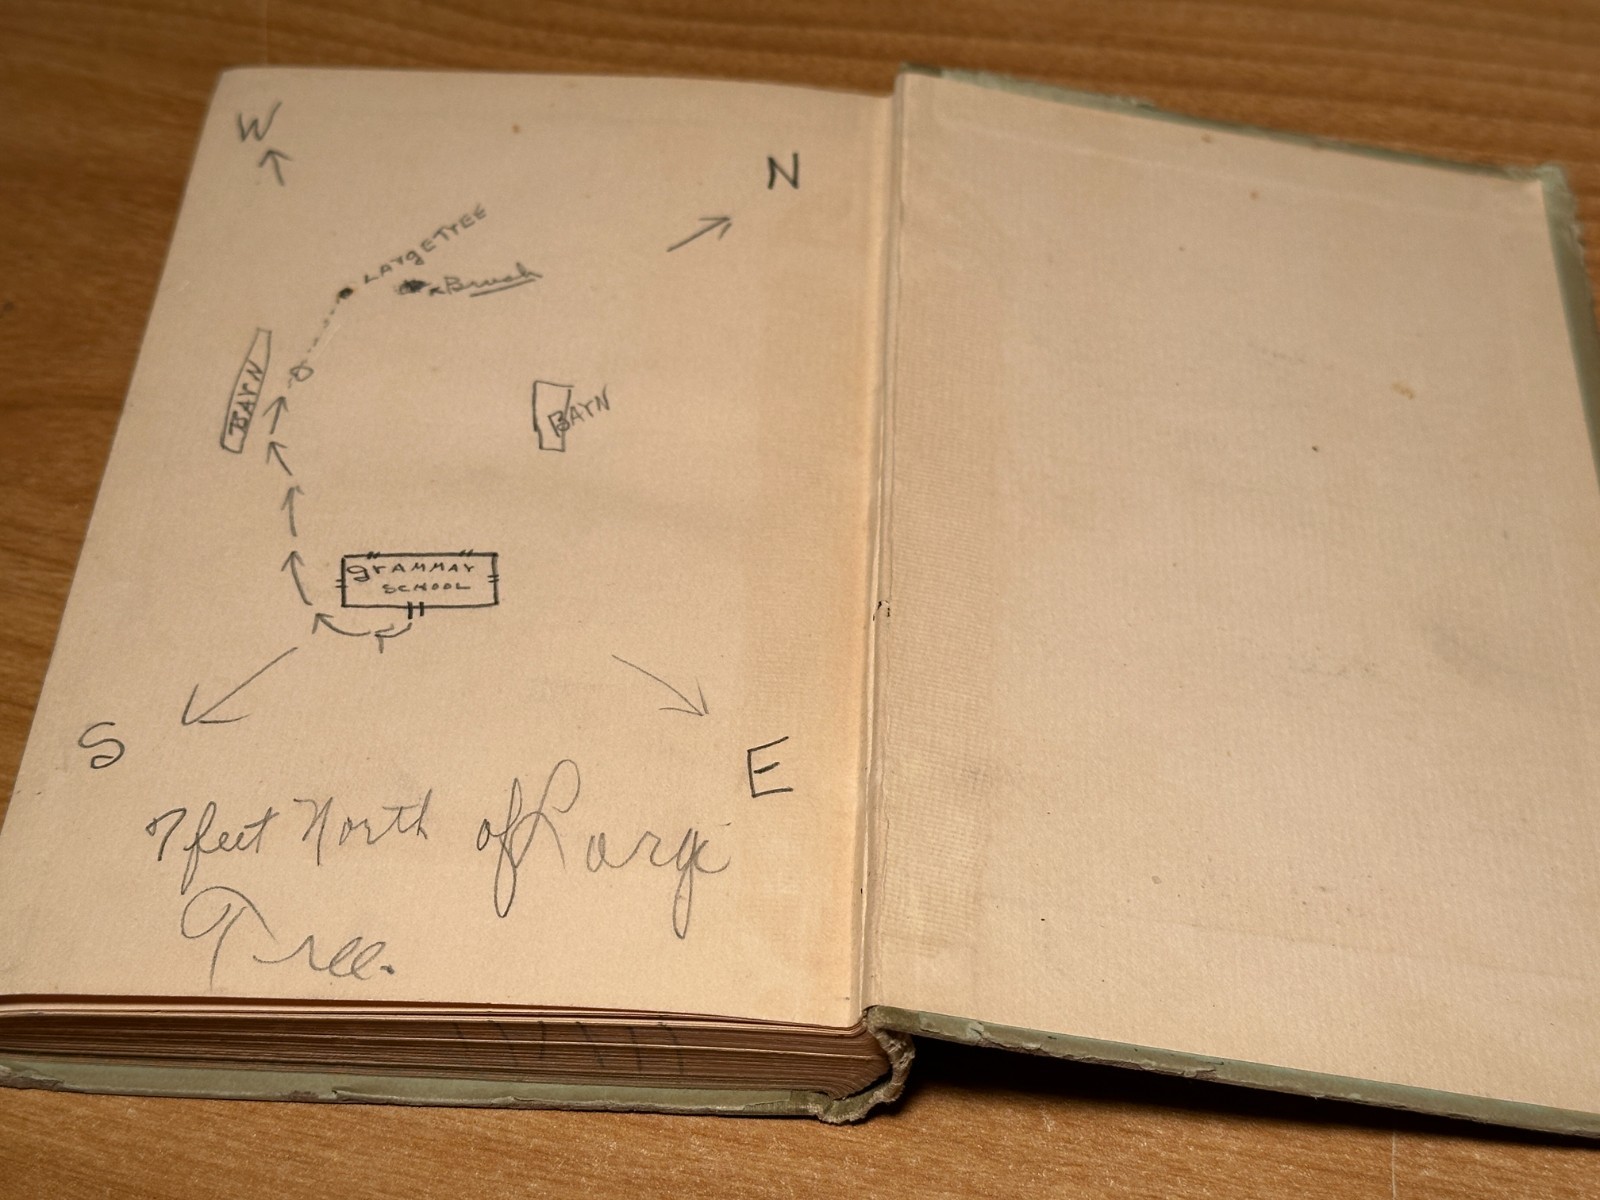 W
N
LArgeTree
Brush
BArN
BArN
grAMMAr
SCHOOL
S
E
7 feet North of Large
Tree.